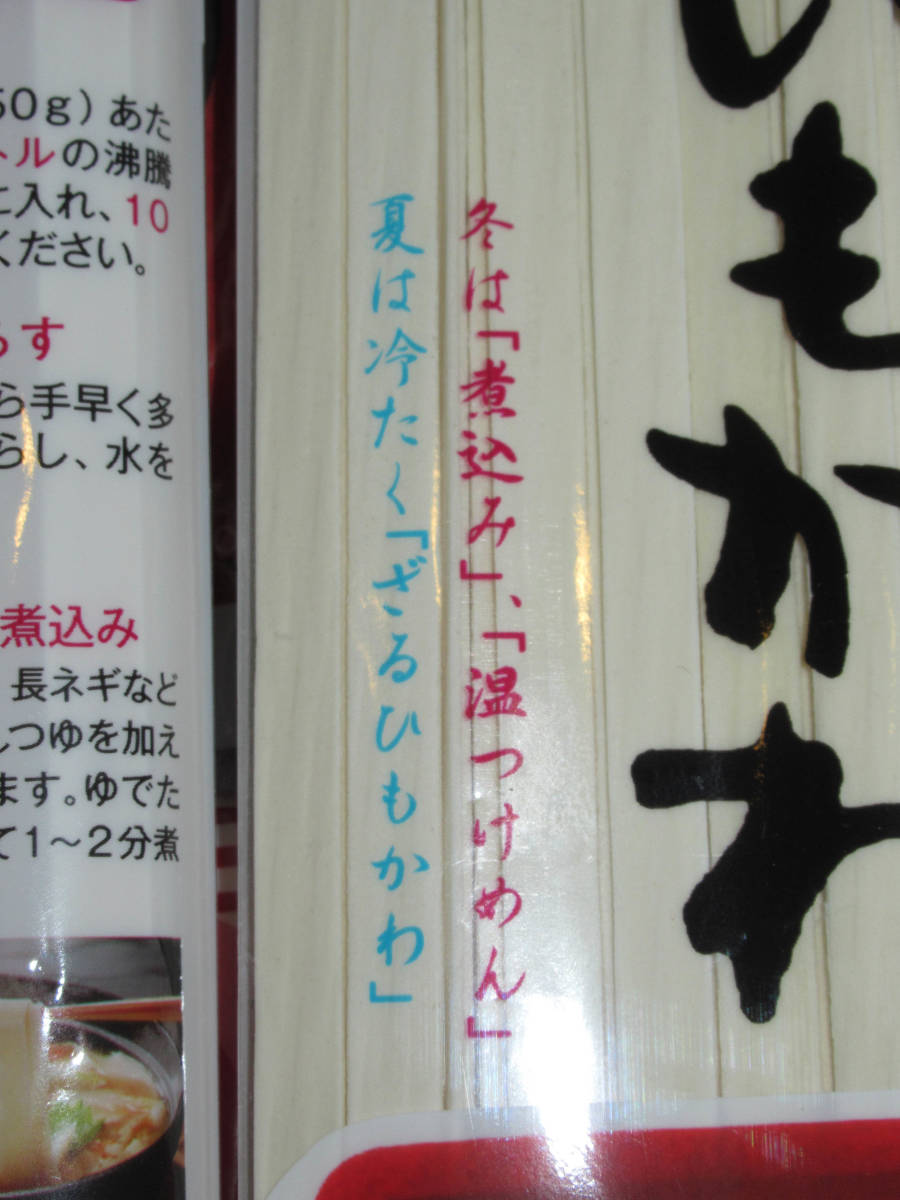 ひもかわ
冬は「煮込み」、「温つけめん」
夏は冷たく「ざるひもかわ」
50g）あた
トルの沸騰
に入れ、10
ください。
らす
ら手早く多
らし、水を
煮込み
長ネギなど
しつゆを加え
ます。ゆでた
て1～2分煮